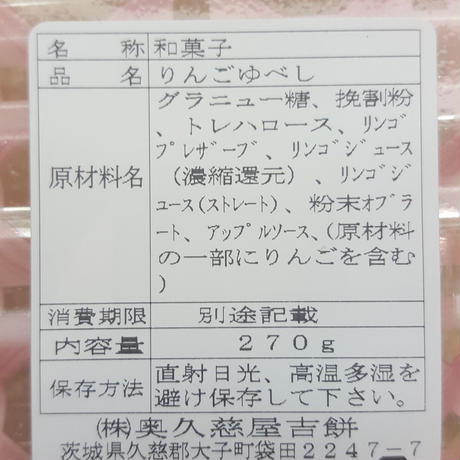 名称 和菓子
品名 りんごゆべし
原材料名
グラニュー糖、挽割粉
、トレハロース、リンゴ
プレザーブ、リンゴジュース
(濃縮還元)、リンゴジ
ュース(ストレート)、粉末オブラ
ート、アップルソース、(原材料
の一部にりんごを含む
)
消費期限 別途記載
内容量 270g
保存方法 直射日光、高温多湿を
避け保存して下さい。
(株)奥久慈屋吉餅
茨城県久慈郡大子町袋田2247-7